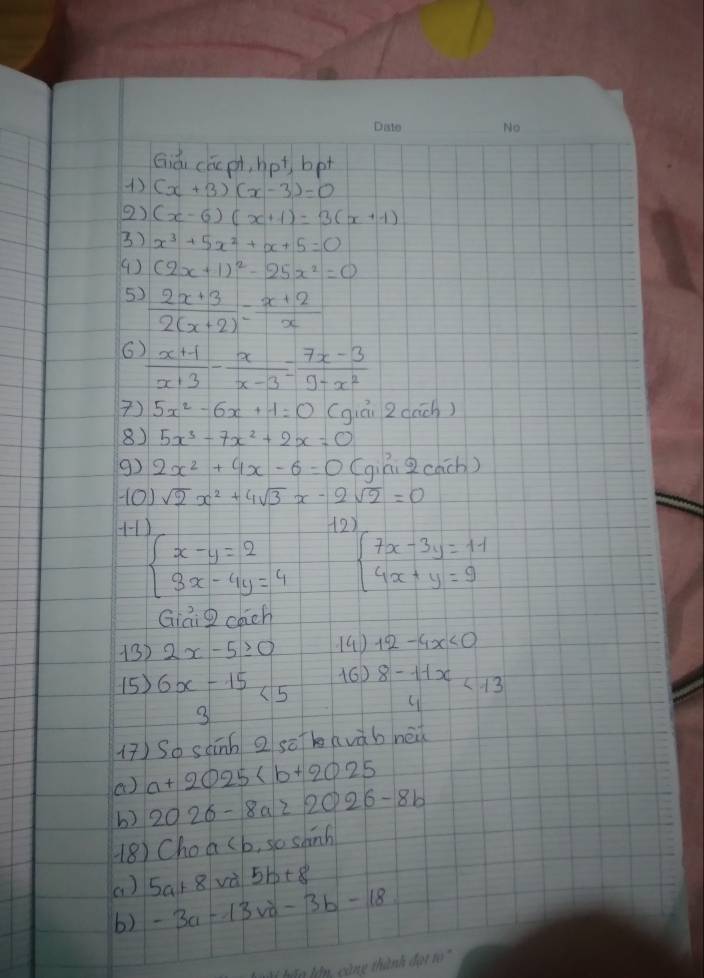 Date No
Giải các pt, hpt, bpt
1) (x + 3) (x - 3) = 0
2) (x - 6) (x + 1) = 3(x + 1)
3) x³ + 5x² + x + 5 = 0
4) (2x + 1)² - 25x² = 0
5) (2x + 3)/(2(x + 2)) = (x + 2)/x
6) (x + 1)/(x + 3) - x/(x - 3) = (7x - 3)/(9 - x²)
7) 5x² - 6x + 1 = 0 (giải 2 cách)
8) 5x³ - 7x² + 2x = 0
9) 2x² + 4x - 6 = 0 (giải 2 cách)
10) √2 x² + 4√3 x - 2√2 = 0
11) { x - y = 2
3x - 4y = 4
12) { 7x - 3y = 11
4x + y = 9
Giải 2 cách
13) 2x - 5 ≥ 0 14) 12 - 4x < 0
15) (6x - 15)/3 < 5 16) (8 - 11x)/4 < 13
17) So sánh 2 số a và b nếu
a) a + 2025 < b + 2025
b) 2026 - 8a ≥ 2026 - 8b
18) Cho a < b, so sánh
a) 5a + 8 và 5b + 8
b) - 3a - 13 và - 3b - 18
cùng thành đạt to"